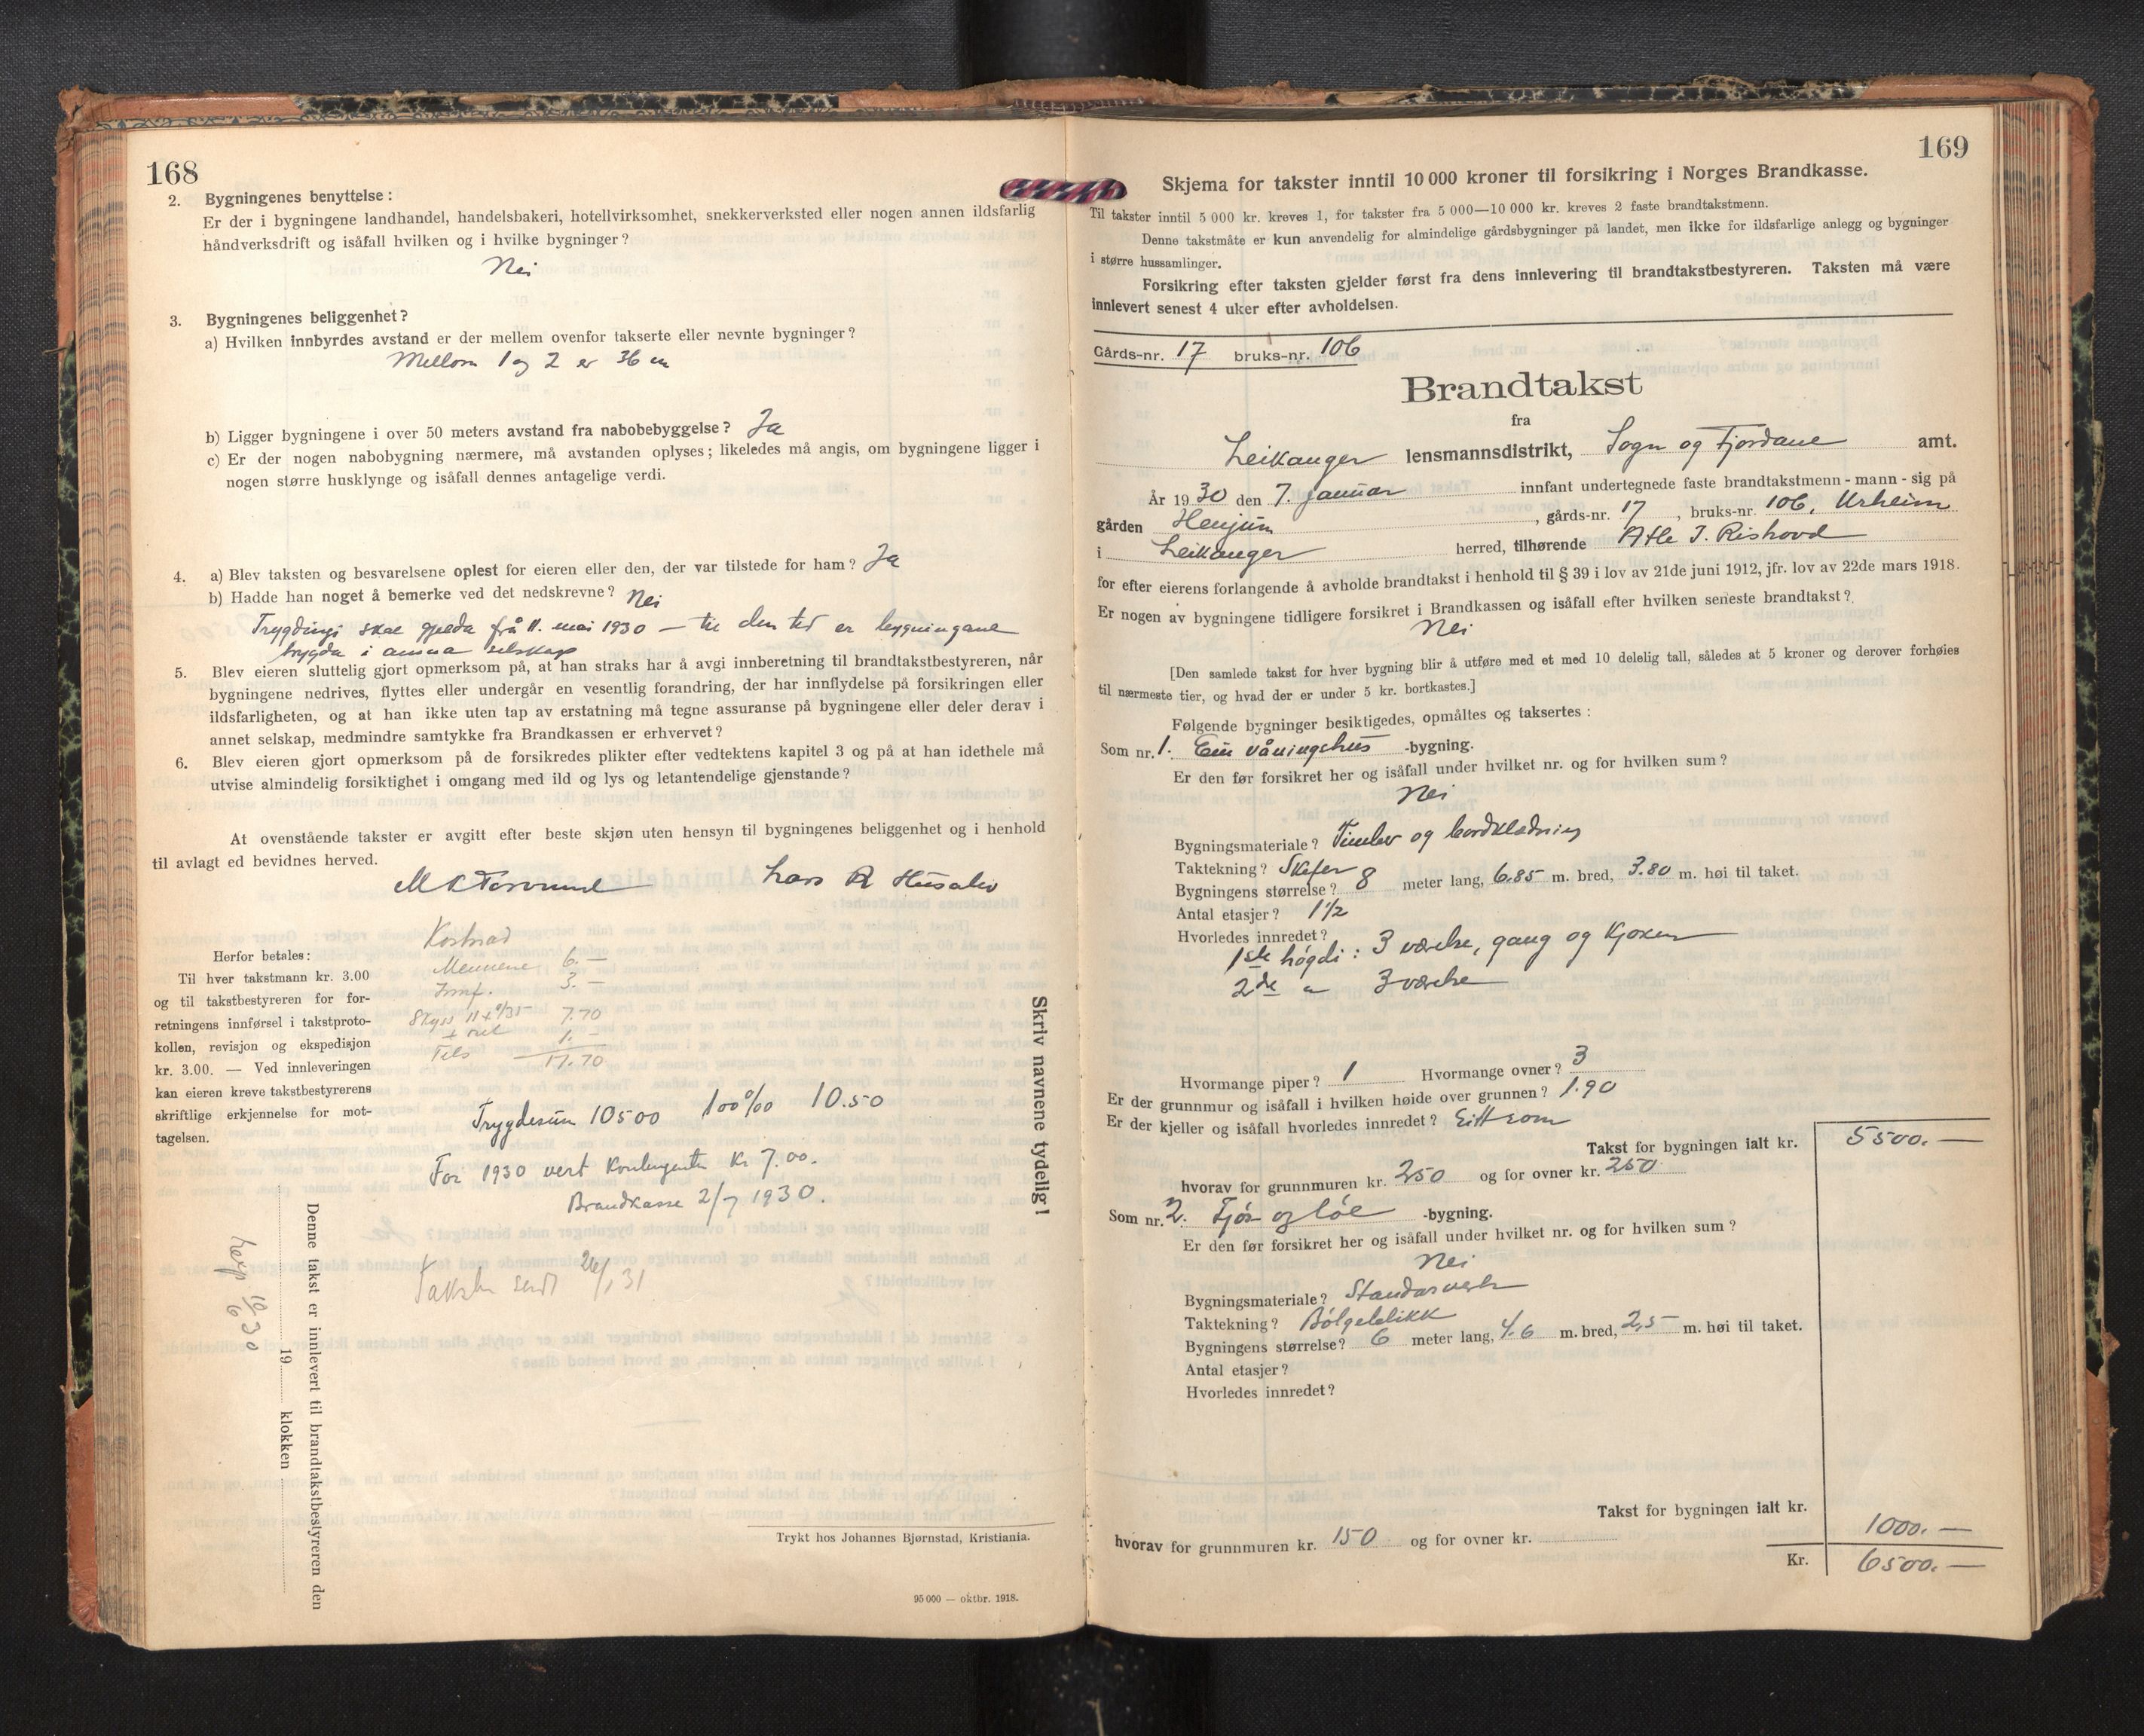 168
2. Bygningenes benyttelse:
Er der i bygningene landhandel, handelsbakeri, hotellvirksomhet, snekkerverksted eller nogen annen ildsfarlig
håndverksdrift og isåfall hvilken og i hvilke bygninger?
Nei
3. Bygningenes beliggenhet?
a) Hvilken innbyrdes avstand er der mellem ovenfor takserte eller nevnte bygninger?
Mellom 1 og 2 er 36 m
b) Ligger bygningene i over 50 meters avstand fra nabobebyggelse? Ja
c) Er der nogen nabobygning nærmere, må avstanden oplyses; likeledes må angis, om bygningene ligger i
nogen større husklynge og isåfall dennes antagelige verdi.
4. a) Blev taksten og besvarelsene oplest for eieren eller den, der var tilstede for ham? Ja
b) Hadde han noget å bemerke ved det nedskrevne? Nei
Trygdingi skal gjelda frå 11. mai 1930 — til den tid er bygningane
trygda i anna selskap
5. Blev eieren sluttelig gjort opmerksom på, at han straks har å avgi innberetning til brandtakstbestyreren, når
bygningene nedrives, flyttes eller undergår en vesentlig forandring, der har innflydelse på forsikringen eller
ildsfarligheten, og at han ikke uten tap av erstatning må tegne assuranse på bygningene eller deler derav i
annet selskap, medmindre samtykke fra Brandkassen er erhvervet?
6. Blev eieren gjort opmerksom på de forsikredes plikter efter vedtektens kapitel 3 og på at han idethele må
utvise almindelig forsiktighet i omgang med ild og lys og letantendelige gjenstande?
At ovenstående takster er avgitt efter beste skjøn uten hensyn til bygningenes beliggenhet og i henhold
til avlagt ed bevidnes herved.
Lars R Husabø
Kostnad
Mennene 6.—
Innf. 3.—
Skyss 7.70
1.—
Tils 17.70
Herfor betales:
Til hver takstmann kr. 3.00
og til takstbestyreren for for-
retningens innførsel i takstproto-
kollen, revisjon og ekspedisjon
kr. 3.00. — Ved innleveringen
kan eieren kreve takstbestyrerens
skriftlige erkjennelse for mot-
tagelsen.
Skriv navnene tydelig!
Trygdesum 10500 10.50
For 1930 vert kontingenten Kr 7.00.
Brandkasse 2/7 1930.
Taksten sendt
Denne takst er innlevert til brandtakstbestyreren den
19 klokken
Trykt hos Johannes Bjørnstad, Kristiania.
95 000 — oktbr. 1918.
169
Skjema for takster inntil 10 000 kroner til forsikring i Norges Brandkasse.
Til takster inntil 5 000 kr. kreves 1, for takster fra 5 000—10 000 kr. kreves 2 faste brandtakstmenn.
Denne takstmåte er kun anvendelig for almindelige gårdsbygninger på landet, men ikke for ildsfarlige anlegg og bygninger
i større hussamlinger.
Forsikring efter taksten gjelder først fra dens innlevering til brandtakstbestyreren. Taksten må være
innlevert senest 4 uker efter avholdelsen.
Gårds-nr. 17 bruks-nr. 106
Brandtakst
fra
Leikanger lensmannsdistrikt, Sogn og Fjordane amt.
År 1930 den 7. januar innfant undertegnede faste brandtakstmenn - mann - sig på
gården Henjum, gårds-nr. 17, bruks-nr. 106, Urheim
i Leikanger herred, tilhørende Atle J. Rishovd
for efter eierens forlangende å avholde brandtakst i henhold til § 39 i lov av 21de juni 1912, jfr. lov av 22de mars 1918.
Er nogen av bygningene tidligere forsikret i Brandkassen og isåfall efter hvilken seneste brandtakst?
Nei
[Den samlede takst for hver bygning blir å utføre med et med 10 delelig tall, således at 5 kroner og derover forhøies
til nærmeste tier, og hvad der er under 5 kr. bortkastes.]
Følgende bygninger besiktigedes, opmåltes og taksertes:
Som nr. 1. Ein våningshus -bygning.
Er den før forsikret her og isåfall under hvilket nr. og for hvilken sum?
Nei
Bygningsmateriale? Timber og bordklædning
Taktekning? Skifer
Bygningens størrelse? 8 meter lang, 6.85 m. bred, 3.80 m. høi til taket.
Antal etasjer? 1½
Hvorledes innredet?
1ste høgdi: 3 værelse, gang og kjøken
2de " 3 værelse
Hvormange piper? 1 Hvormange ovner? 3
Er der grunnmur og isåfall i hvilken høide over grunnen? 1.90
Er der kjeller og isåfall hvorledes innredet? Eitt rom
Takst for bygningen ialt kr. 5500.—
hvorav for grunnmuren kr. 250 og for ovner kr. 250
Som nr. 2. Fjøs og løe -bygning.
Er den før forsikret her og isåfall under hvilket nr. og for hvilken sum?
Nei
Bygningsmateriale? Standarverk
Taktekning? Bølgeblikk
Bygningens størrelse? 6 meter lang, 4.6 m. bred, 2,5 m. høi til taket.
Antal etasjer?
Hvorledes innredet?
Takst for bygningen ialt kr. 1000.—
hvorav for grunnmuren kr. 150 og for ovner kr.
Kr. 6500.—